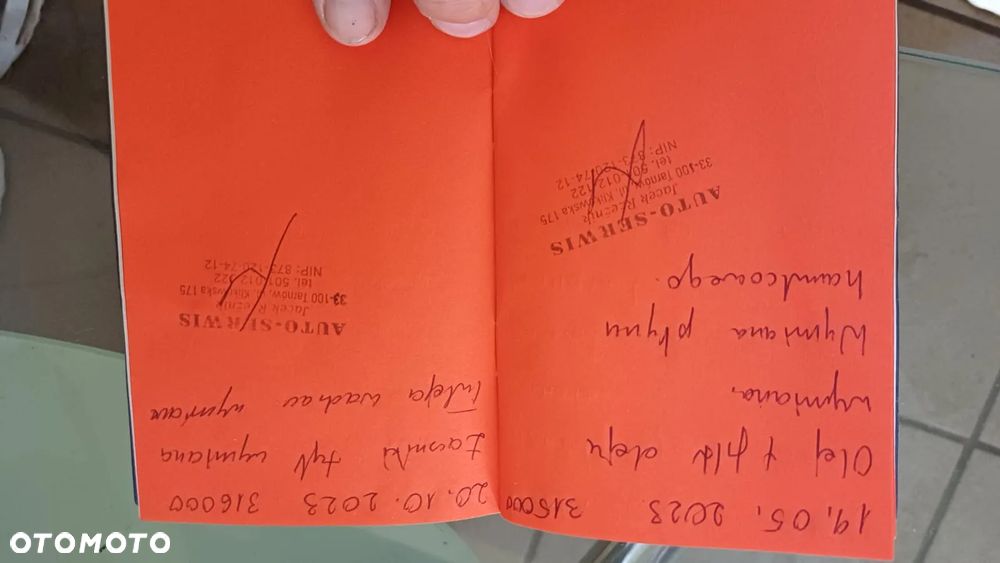 19.05.2023 315000
Olej + filtr oleju
wymiana.
Wymiana płynu
hamulcowego.
AUTO-SERWIS
Jacek Rzeźnik
33-100 Tarnów, ul. Klikowska 175
tel. 501 012 122
NIP: 873-120-74-12
20.10.2023 316000
Łączniki tył wymiana
Tuleja wachacz wymiana
AUTO-SERWIS
Jacek Rzeźnik
33-100 Tarnów, ul. Klikowska 175
tel. 501 012
NIP: 873-120-74-12
OTOMOTO